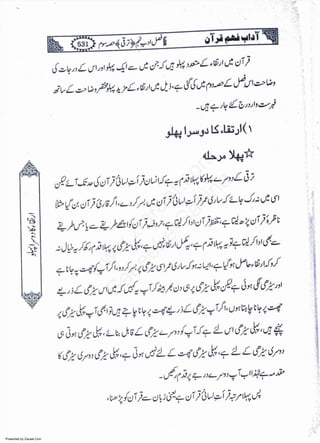 آداب فہم قرآن
531
فصل ادب نہم ﴿ترقی﴾ حصہ سوم
قرآن میں ارتقاء کے متعدد پہلو ہیں کہ جن میں سے ایک پہلو اور اس کے درجات کی
وضاحت اس فصل کے حصہ دوم میں کی گئی ہے، ذیل میں ارتقاء کے مزید پہلو مختصر وضاحت کے ساتھ
فہرست وار درج کئے جا رہے ہیں۔
۱) ارتقاء کا دوسرا پہلو
☆ پہلا مرحلہ
ترقی کے دوسرے پہلو کا پہلا قدم یہ ہے کہ انسان قرأت لسانی قرآن کی حد تک آئے لیکن
اسی میں نہ رک جائے کہ ساری عمر قرأت لسانی قرآن میں بسر کر دے، اگر قاری قرآن بن گیا مثلاً
ناظرہ قرآن پڑھ لیتا ہے، تلفظ قرآن ادا کر لیتا ہے، حروف قرآن کو اچھے طریقے سے یا جس طریقے
سے بھی ادا کر لیتا ہے تو یہ پہلا قدم ہے، یہ مکمل ارتقاء نہیں ہے، پہلی سیڑھی پر پہلا قدم رکھ کر یہ خیال نہ
کرو کہ ارتقاء حاصل ہو گیا ہے، ایسا نہ ہو کہ ساری عمر اسی سیڑھی پر بسر کر دو، اگر آپ کو چھت پر جانا ہے
اور سیڑھی لگی ہوئی ہے لیکن پہلی سیڑھی پر ہی دن بھر بیٹھ کر آپ یہ کہیں کہ میں اس سیڑھی کے ذریعے
چھت پر جانا چاہتا ہوں، اگر آپ سیڑھی کے ذریعے چھت پر جانا چاہتے ہیں تو ابھی آپ پہلی سیڑھی پر
پہنچے ہیں، پہلی سیڑھی اس لئے ہے کہ آپ کو دوسرے سیڑھی کے قابل بنائے، پہلی سیڑھی ہوتی ہی
دوسری سیڑھی کے لئے ہے، پہلی سیڑھی چھت کے لئے نہیں ہوتی ہے، پہلی سیڑھی دوسری سیڑھی کا
مقدمہ ہے لہذا اب آپ دوسرے درجے پر قدم رکھیں۔
پس پہلا مرتبہ قرأت لسانی قرآن ہے یعنی زبان سے قرآن کو پڑھنا،
ارتقاء کا دوسرا پہلو
Presented by Ziaraat.Com